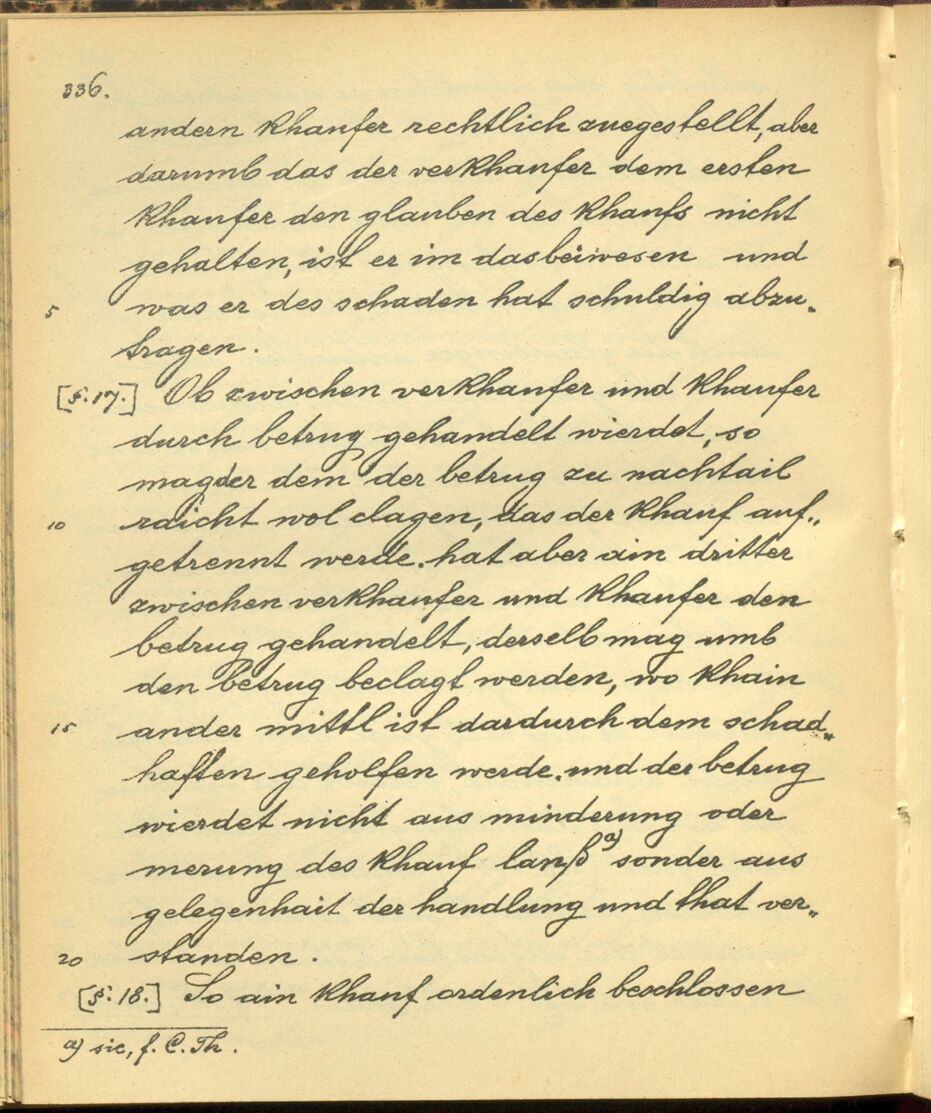 336.
andern khaufer rechtlich zuegestellt, aber
darumb das der verkhaufer dem ersten
khaufer den glauben des khaufs nicht
gehalten, ist er im das beiwesen und
5 was er des schaden hat schuldig abzu„
tragen.
[§. 17.] Ob zwischen verkhaufer und khaufer
durch betrug gehandelt wierdet, so
mag der dem der betrug zu nachtail
10 raicht wol clagen, das der khauf auf„
getrennt werde. hat aber ain dritter
zwischen verkhaufer und khaufer den
betrug gehandelt, derselb mag umb
den betrug beclagt werden, wo khain
15 ander mittl ist dardurch dem schad„
haften geholfen werde. und der betrug
wierdet nicht aus minderung oder
merung des khauf lanß a) sonder aus
gelegenhait der handlung und that ver„
20 standen.
[§. 18.] So ain khauf ordenlich beschlossen
a) sic, f. C. Th.